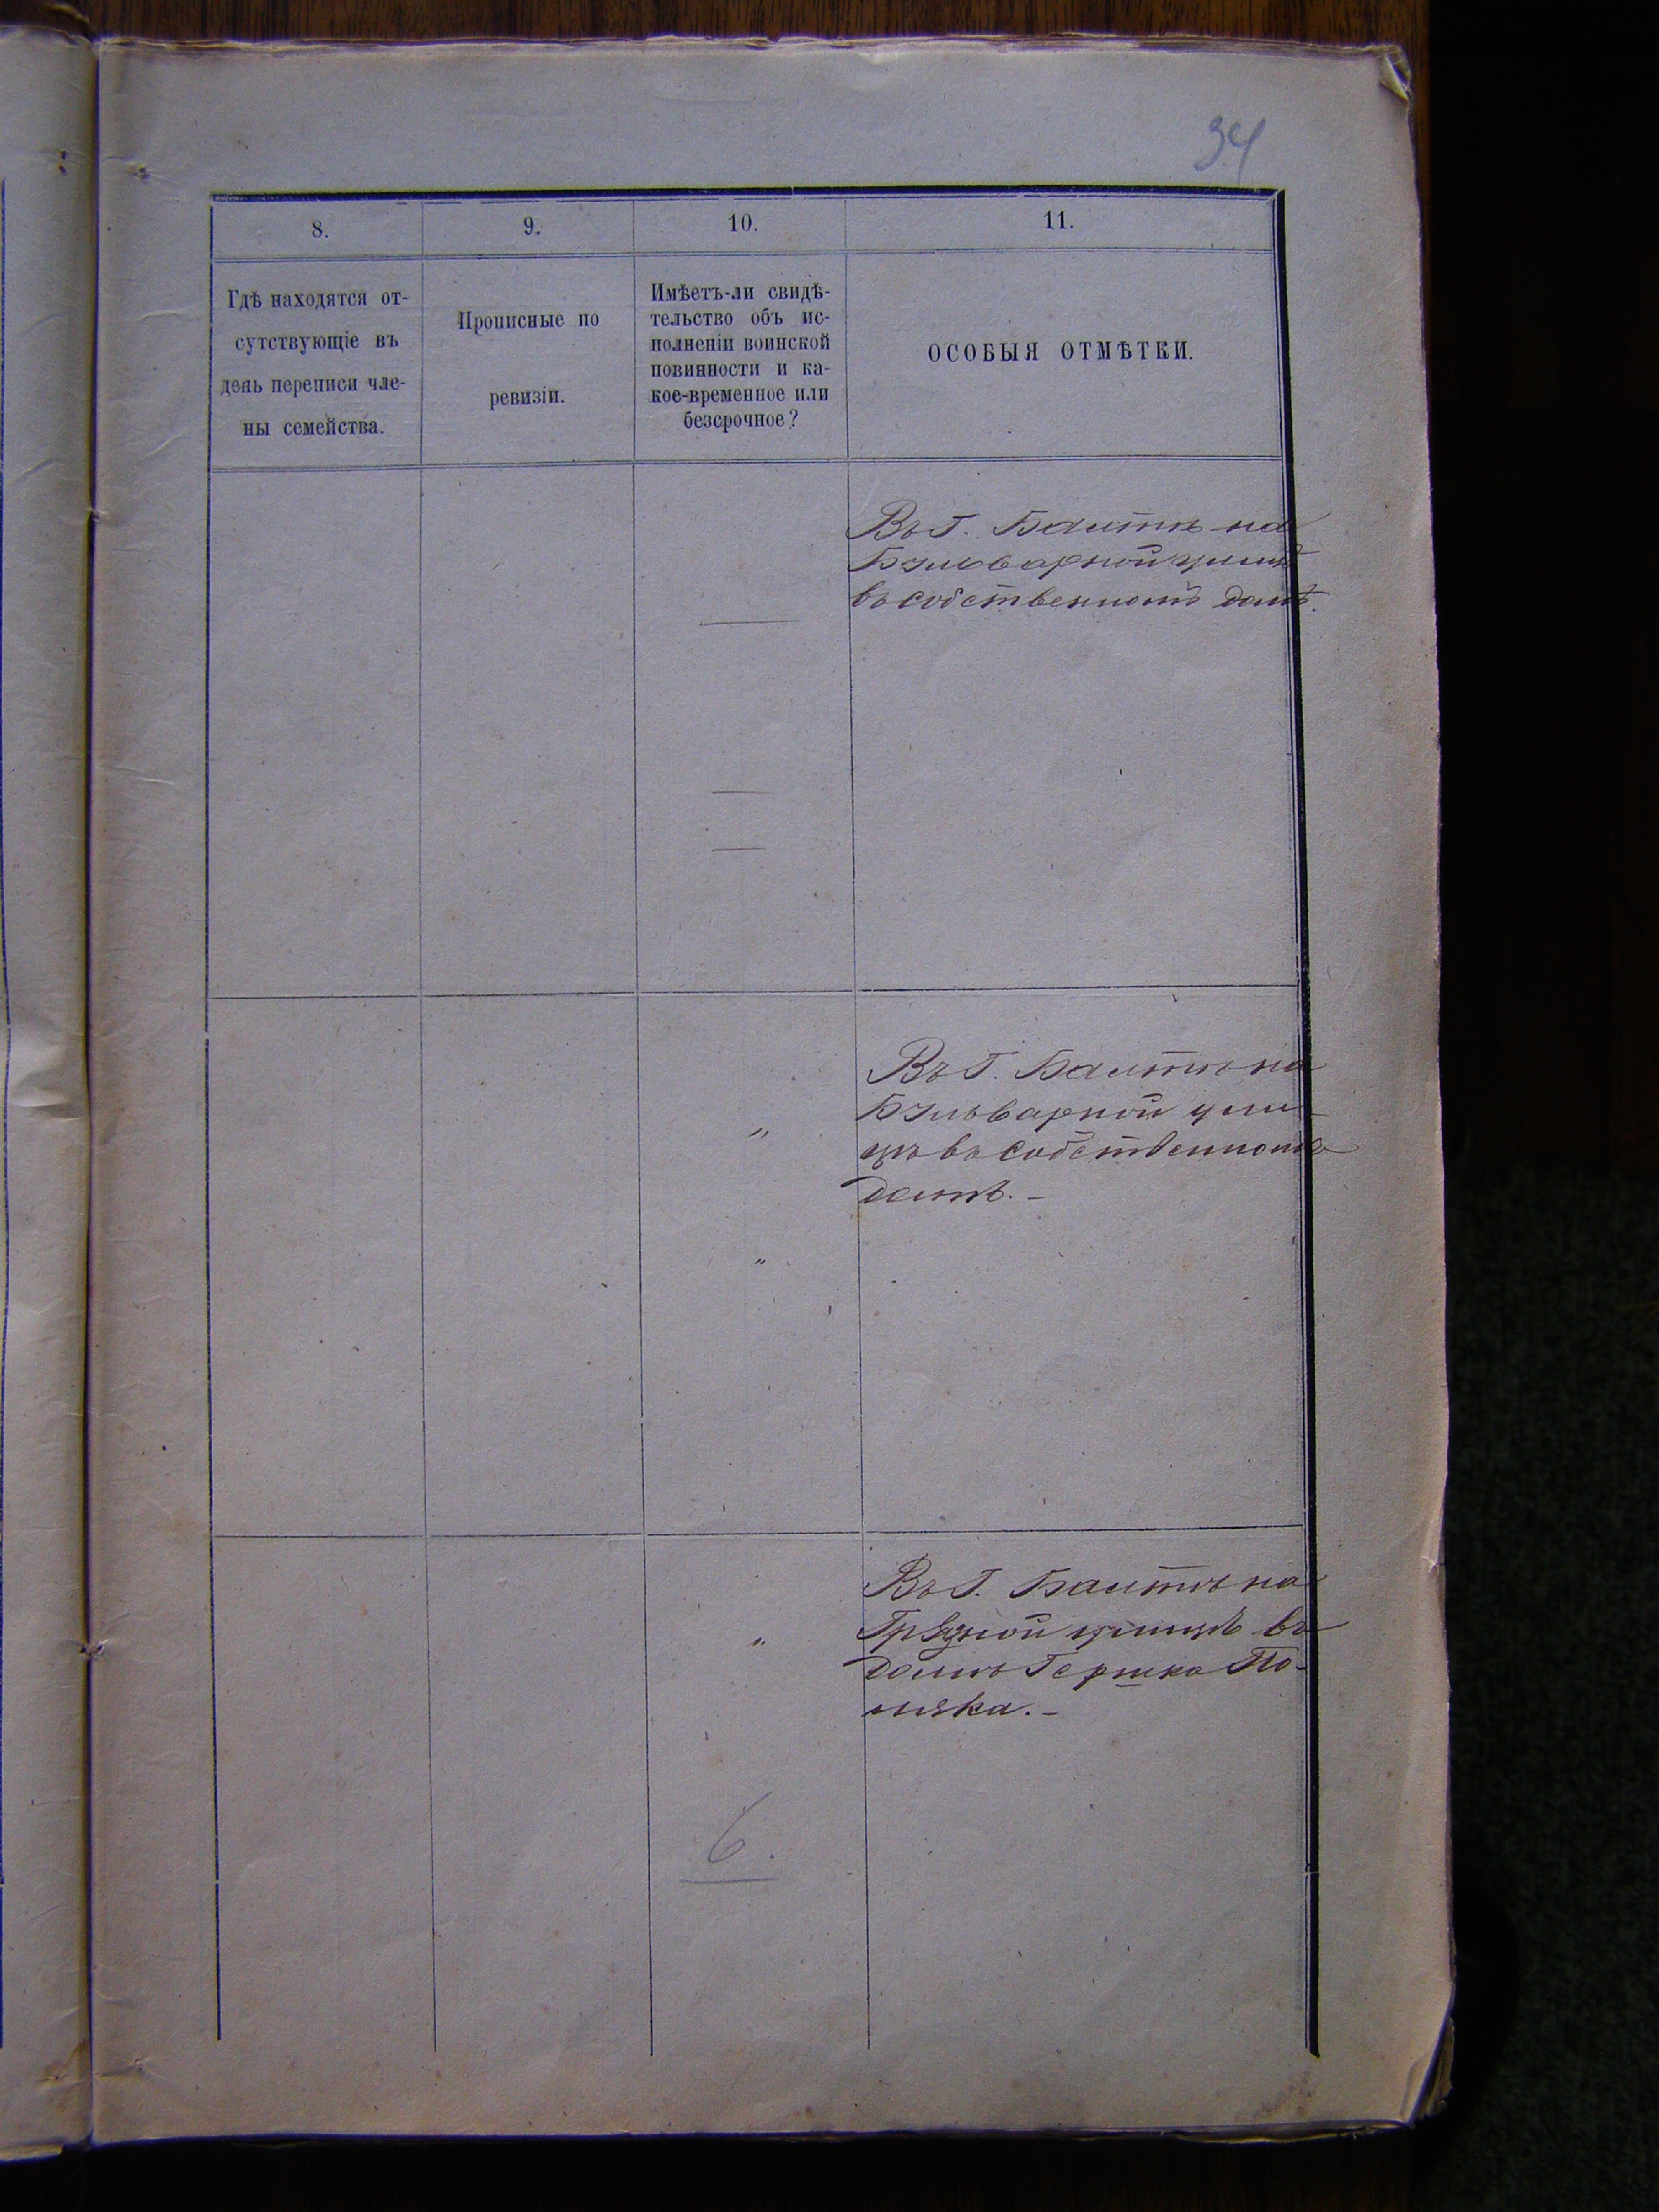 34
8. 9. 10. 11.
Гдѣ находятся от-
сутствующіе въ
день переписи чле-
ны семейства.
Прописные по
ревизіи.
Имѣетъ-ли свидѣ-
тельство объ ис-
полненіи воинской
повинности и ка-
кое-временное или
безсрочное?
ОСОБЫЯ ОТМѢТКИ.
Въ г. Балтѣ на
Бульварной улицѣ
въ собственномъ домѣ.
Въ г. Балтѣ на
„
Бульварной ули-
цѣ въ собственномъ
домѣ. –
„
Въ г. Балтѣ на
„
Грязной улицѣ въ
домѣ Гершка По-
ляка. –
6.